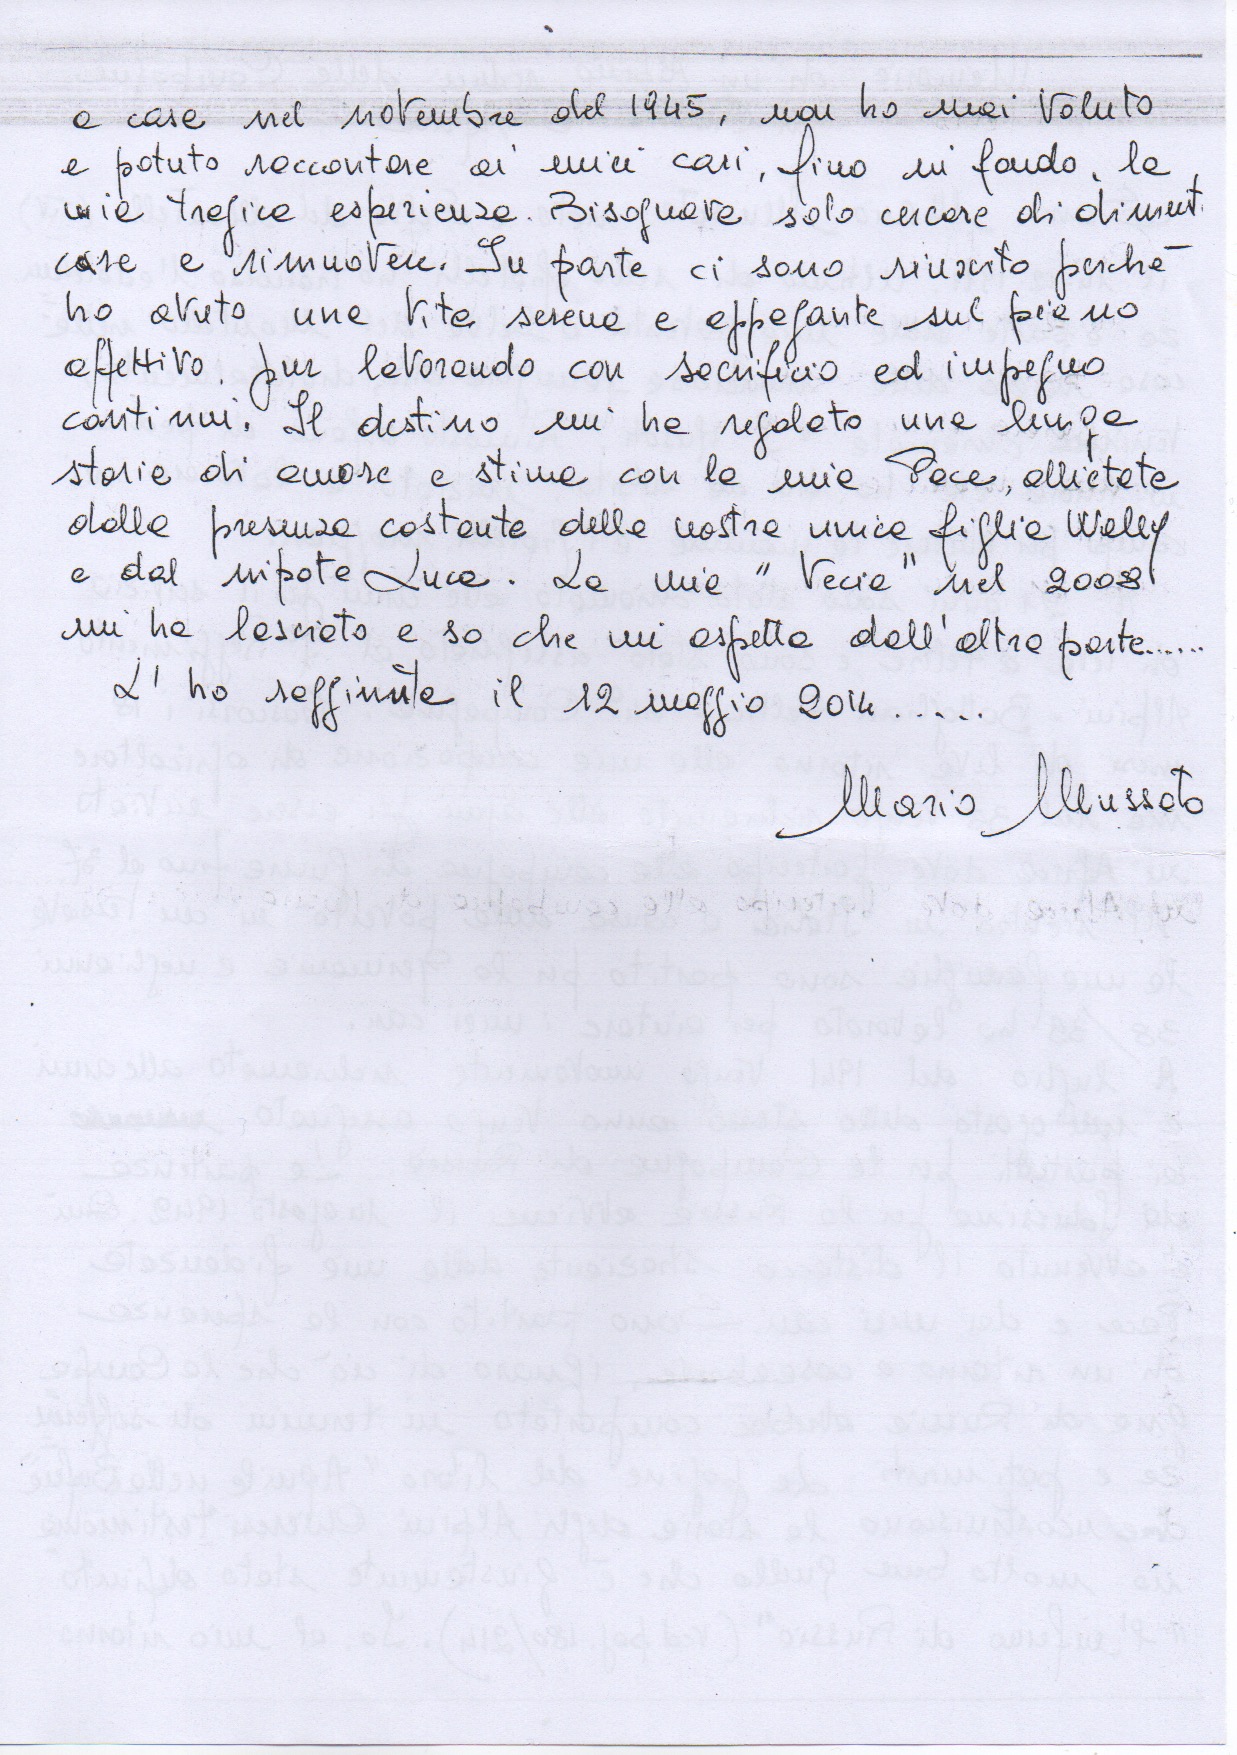 a casa nel novembre del 1945, non ho mai voluto
e potuto raccontare ai miei cari, fino in fondo, la
mia tragica esperienza. Bisognava solo cercare di diment.
care e rimuovere. In parte ci sono riuscito perchè
ho avuto una vita serena e appagante sul piano
affettivo, pur lavorando con sacrificio ed impegno
continui. Il destino mi ha regalato una lunga
storia di amore e stima con la mia Pace, allietata
dalla presenza costante della nostra unica figlia Wally
e dal nipote Luca. La mia "Vecia" nel 2008
mi ha lasciato e so che mi aspetta dall'altra parte......
L'ho raggiunta il 12 maggio 2014......
Mario Mussato